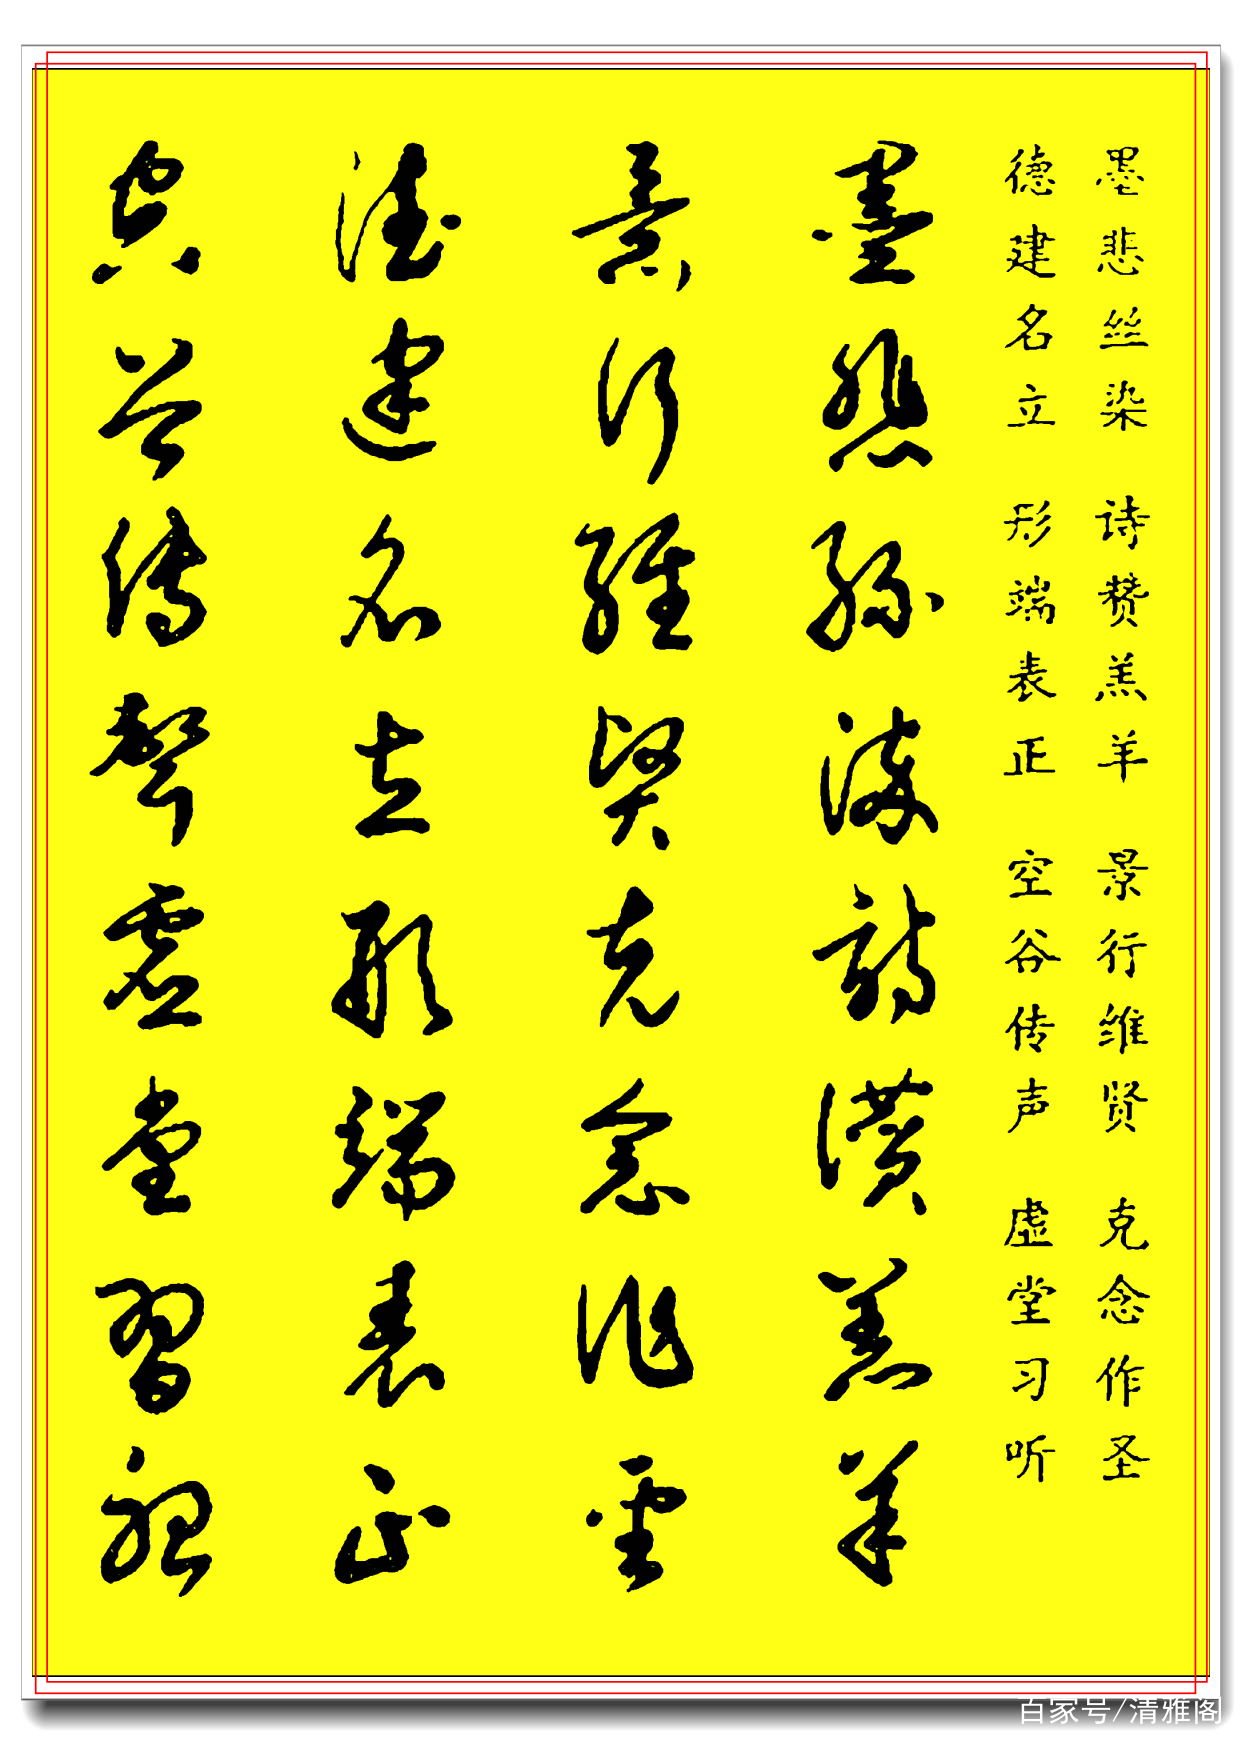 墨悲丝染 诗赞羔羊 景行维贤 克念作圣
德建名立 形端表正 空谷传声 虚堂习听
墨悲絲染詩讚羔羊
景行維賢克念作聖
德建名立形端表正
空谷傳聲虛堂習聽
百家号/清雅阁